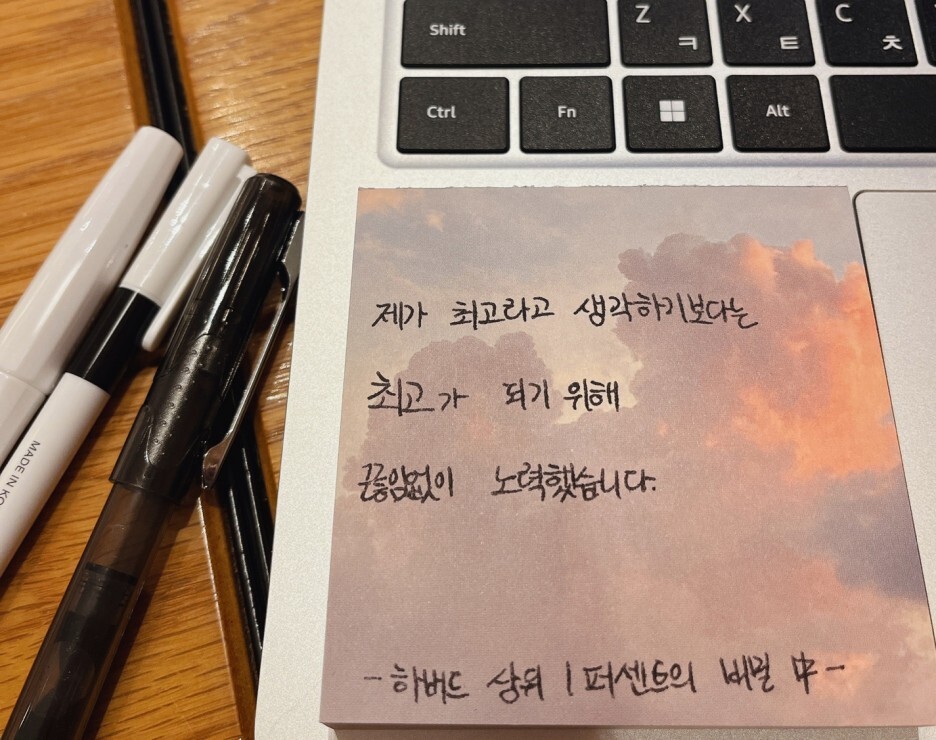 Shift
Z
ㅋ
X
ㅌ
C
ㅊ
Ctrl
Fn
Alt
제가 최고라고 생각하기보다는
최고가 되기 위해
끊임없이 노력했습니다.
-하버드 상위 1퍼센트의 비밀 中-
MADE IN KO